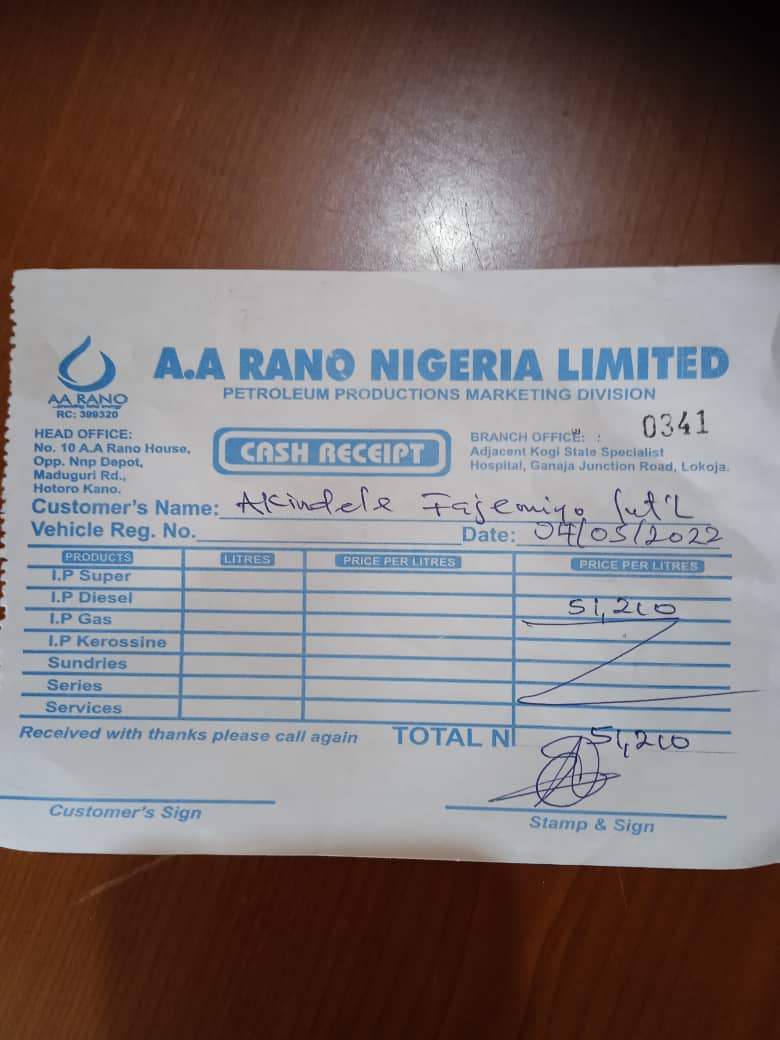 A.A RANO NIGERIA LIMITED
PETROLEUM PRODUCTIONS MARKETING DIVISION
AA RANO
RC: 399320
HEAD OFFICE:
No. 10 A.A Rano House,
Opp. Nnp Depot,
Maduguri Rd.,
Hotoro Kano.
CASH RECEIPT
0341
BRANCH OFFICE: :
Adjacent Kogi State Specialist
Hospital, Ganaja Junction Road, Lokoja.
Customer's Name: Akindele Fajemiyo Int'L
Vehicle Reg. No. Date: 04/05/2022
PRODUCTS LITRES PRICE PER LITRES PRICE PER LITRES
I.P Super
I.P Diesel 51,210
I.P Gas
I.P Kerossine
Sundries
Series
Services
Received with thanks please call again TOTAL N 51,210
Customer's Sign
Stamp & Sign